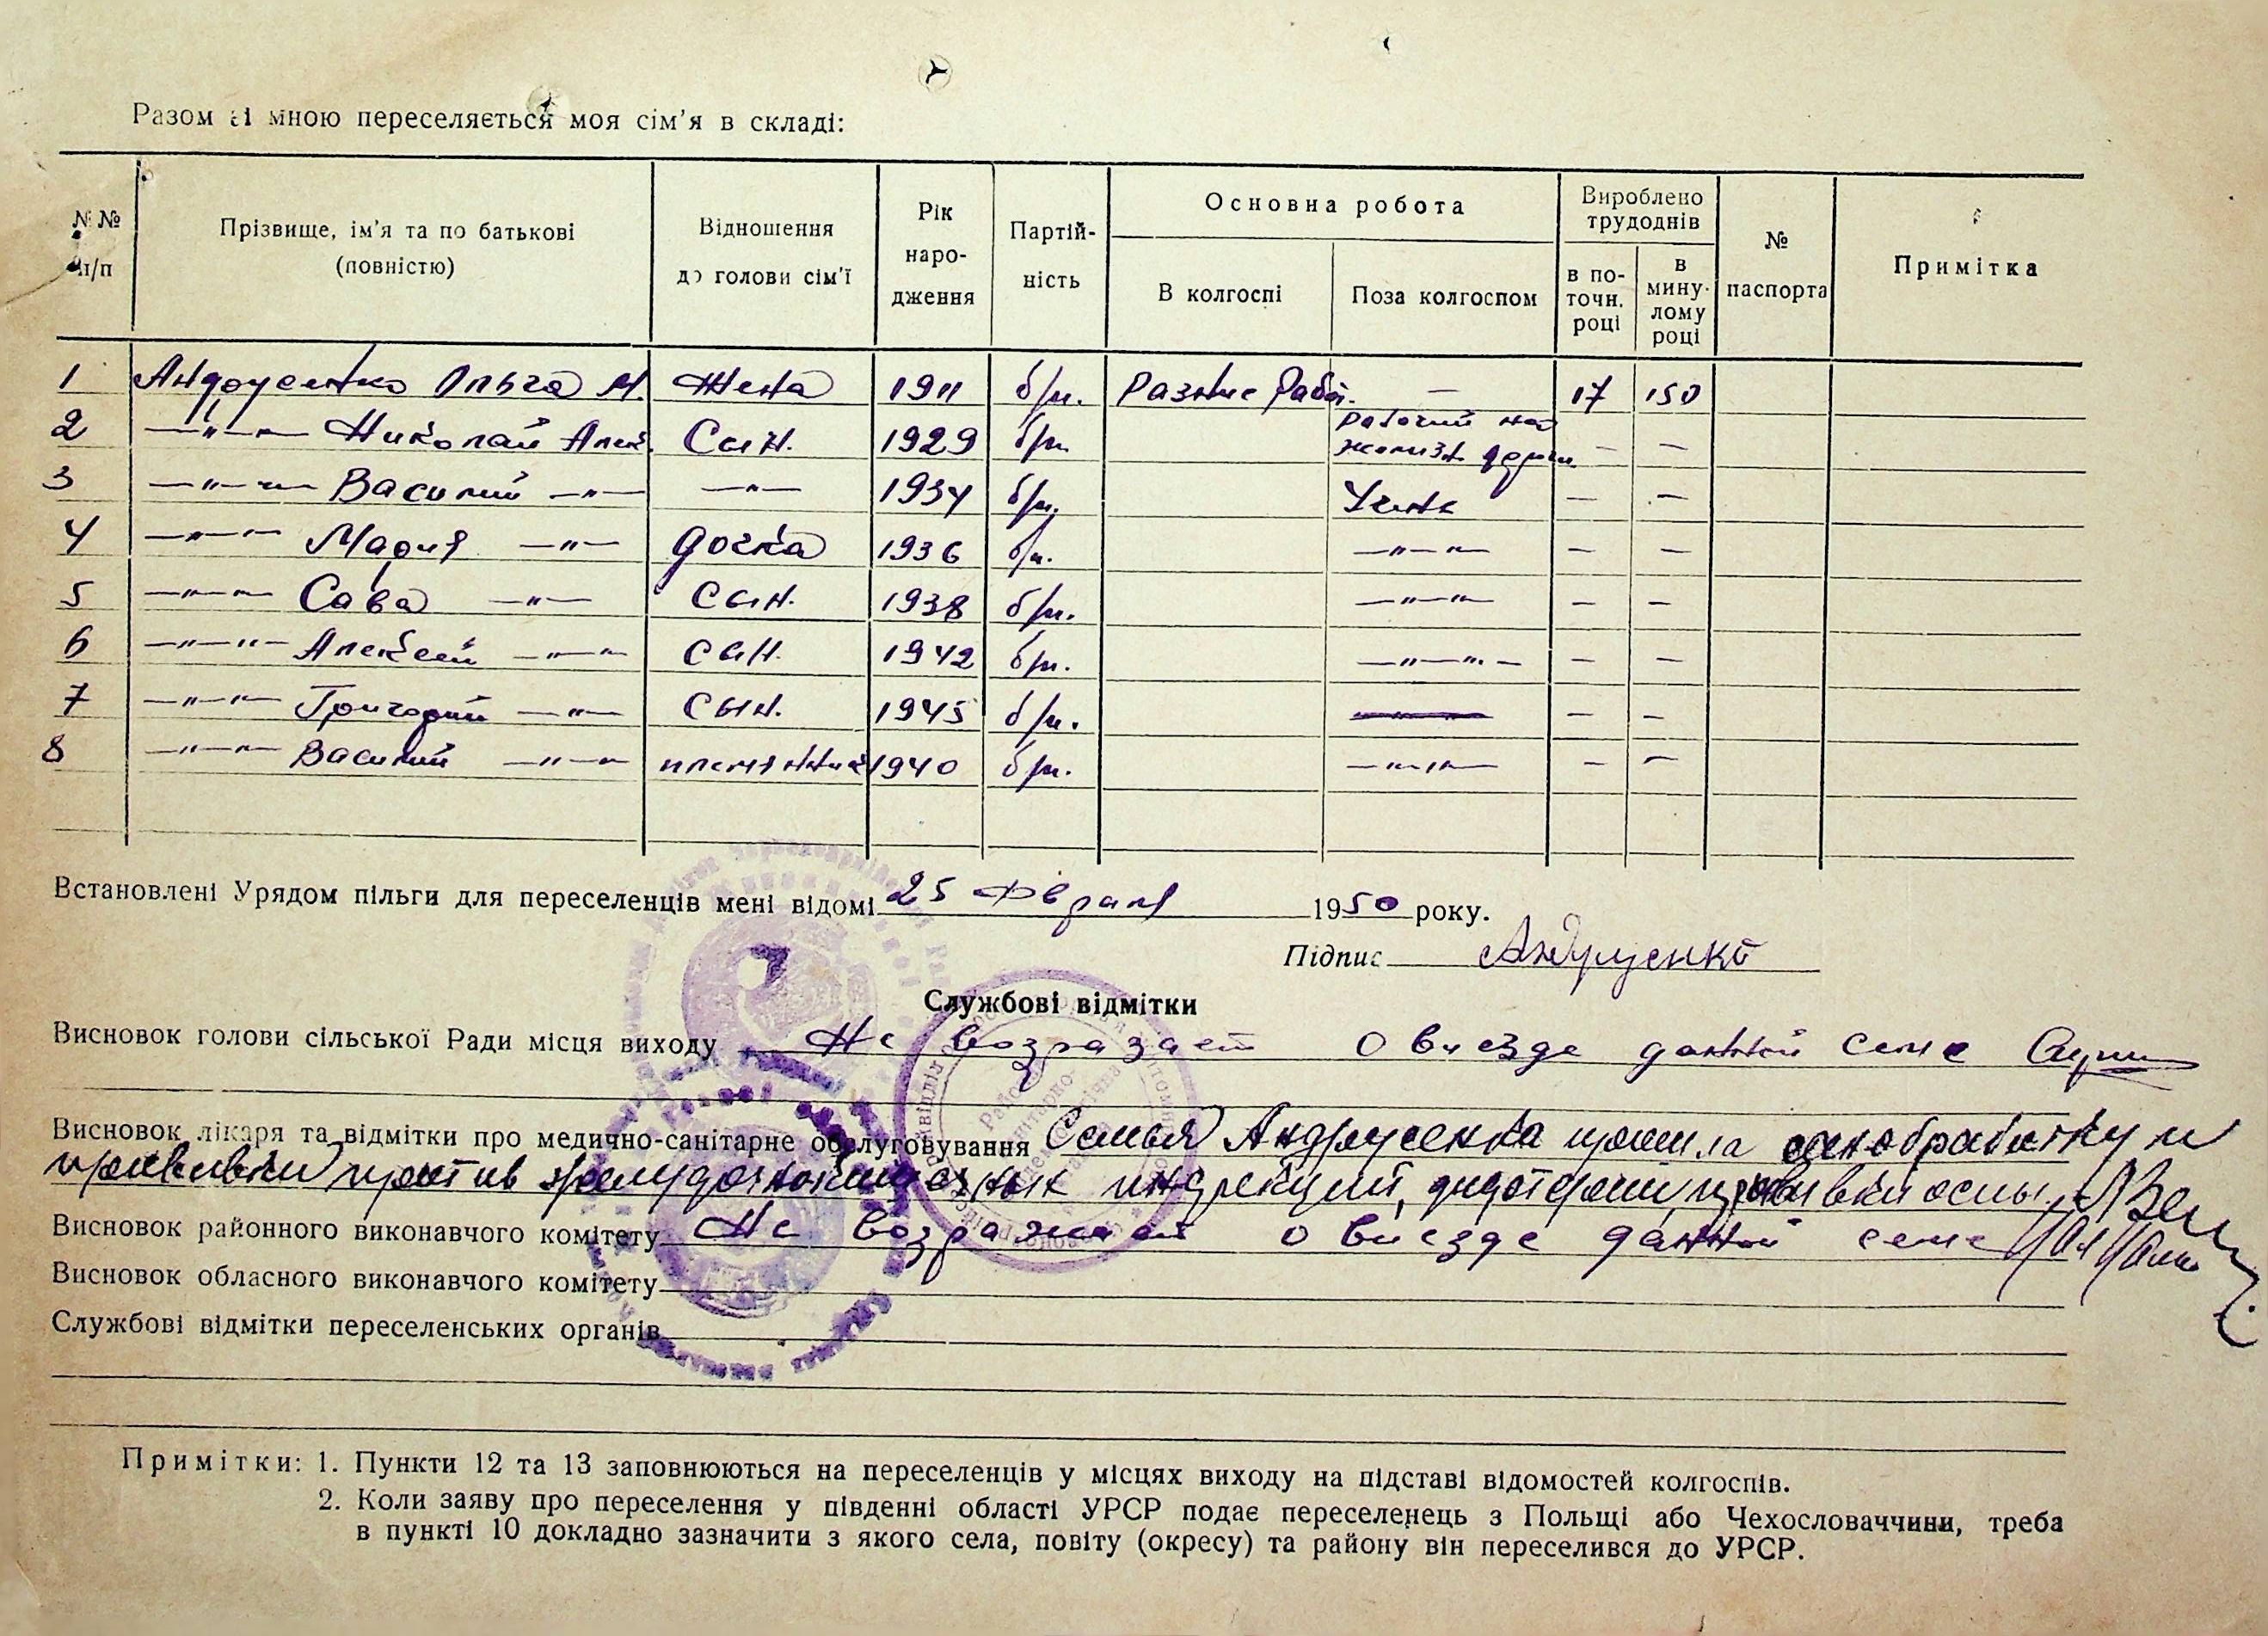 Разом зі мною переселяється моя сім'я в складі:
№№ п/п
Прізвище, ім'я та по батькові (повністю)
Відношення до голови сім'ї
Рік народження
Партійність
Основна робота
В колгоспі
Поза колгоспом
Вироблено трудоднів
в поточн. році
в минулому році
№ паспорта
Примітка
1 Андрусенко Ольга М. Жена 1911 б/п. Разные Работ. — 17 150
2 —"—"— Николай Алек. Сын. 1929 б/п Рабочий на — —
3 —"—"— Василий —"— —"— 1934 б/п. Учень — —
4 —"—"— Мария —"— дочка 1936 б/п. —"—"— — —
5 —"—"— Сава —"— сын. 1938 б/п. —"—"— — —
6 —"—"— Алексей —"—"— сын. 1942 б/п. —"—"— — —
7 —"—"— Григорий —"— сын. 1945 б/п. — —
8 —"—"— Василий —"—"— племянник 1940 б/п. —"—"— — —
Встановлені Урядом пільги для переселенців мені відомі 25 Февраля 1950 року.
Підпис Андрусенко
Службові відмітки
Висновок голови сільської Ради місця виходу Не возразает о виезде данной семе
Висновок лікаря та відмітки про медично-санітарне обслуговування Семья Андрусенка прошла санобработку и
прививки против желудочно-кишечных инфекций, дифтерии, прививки оспы.
Висновок районного виконавчого комітету Не возражает о виезде данной семе
Висновок обласного виконавчого комітету
Службові відмітки переселенських органів
Примітки: 1. Пункти 12 та 13 заповнюються на переселенців у місцях виходу на підставі відомостей колгоспів.
2. Коли заяву про переселення у південні області УРСР подає переселенець з Польщі або Чехословаччини, треба
в пункті 10 докладно зазначити з якого села, повіту (окресу) та району він переселився до УРСР.